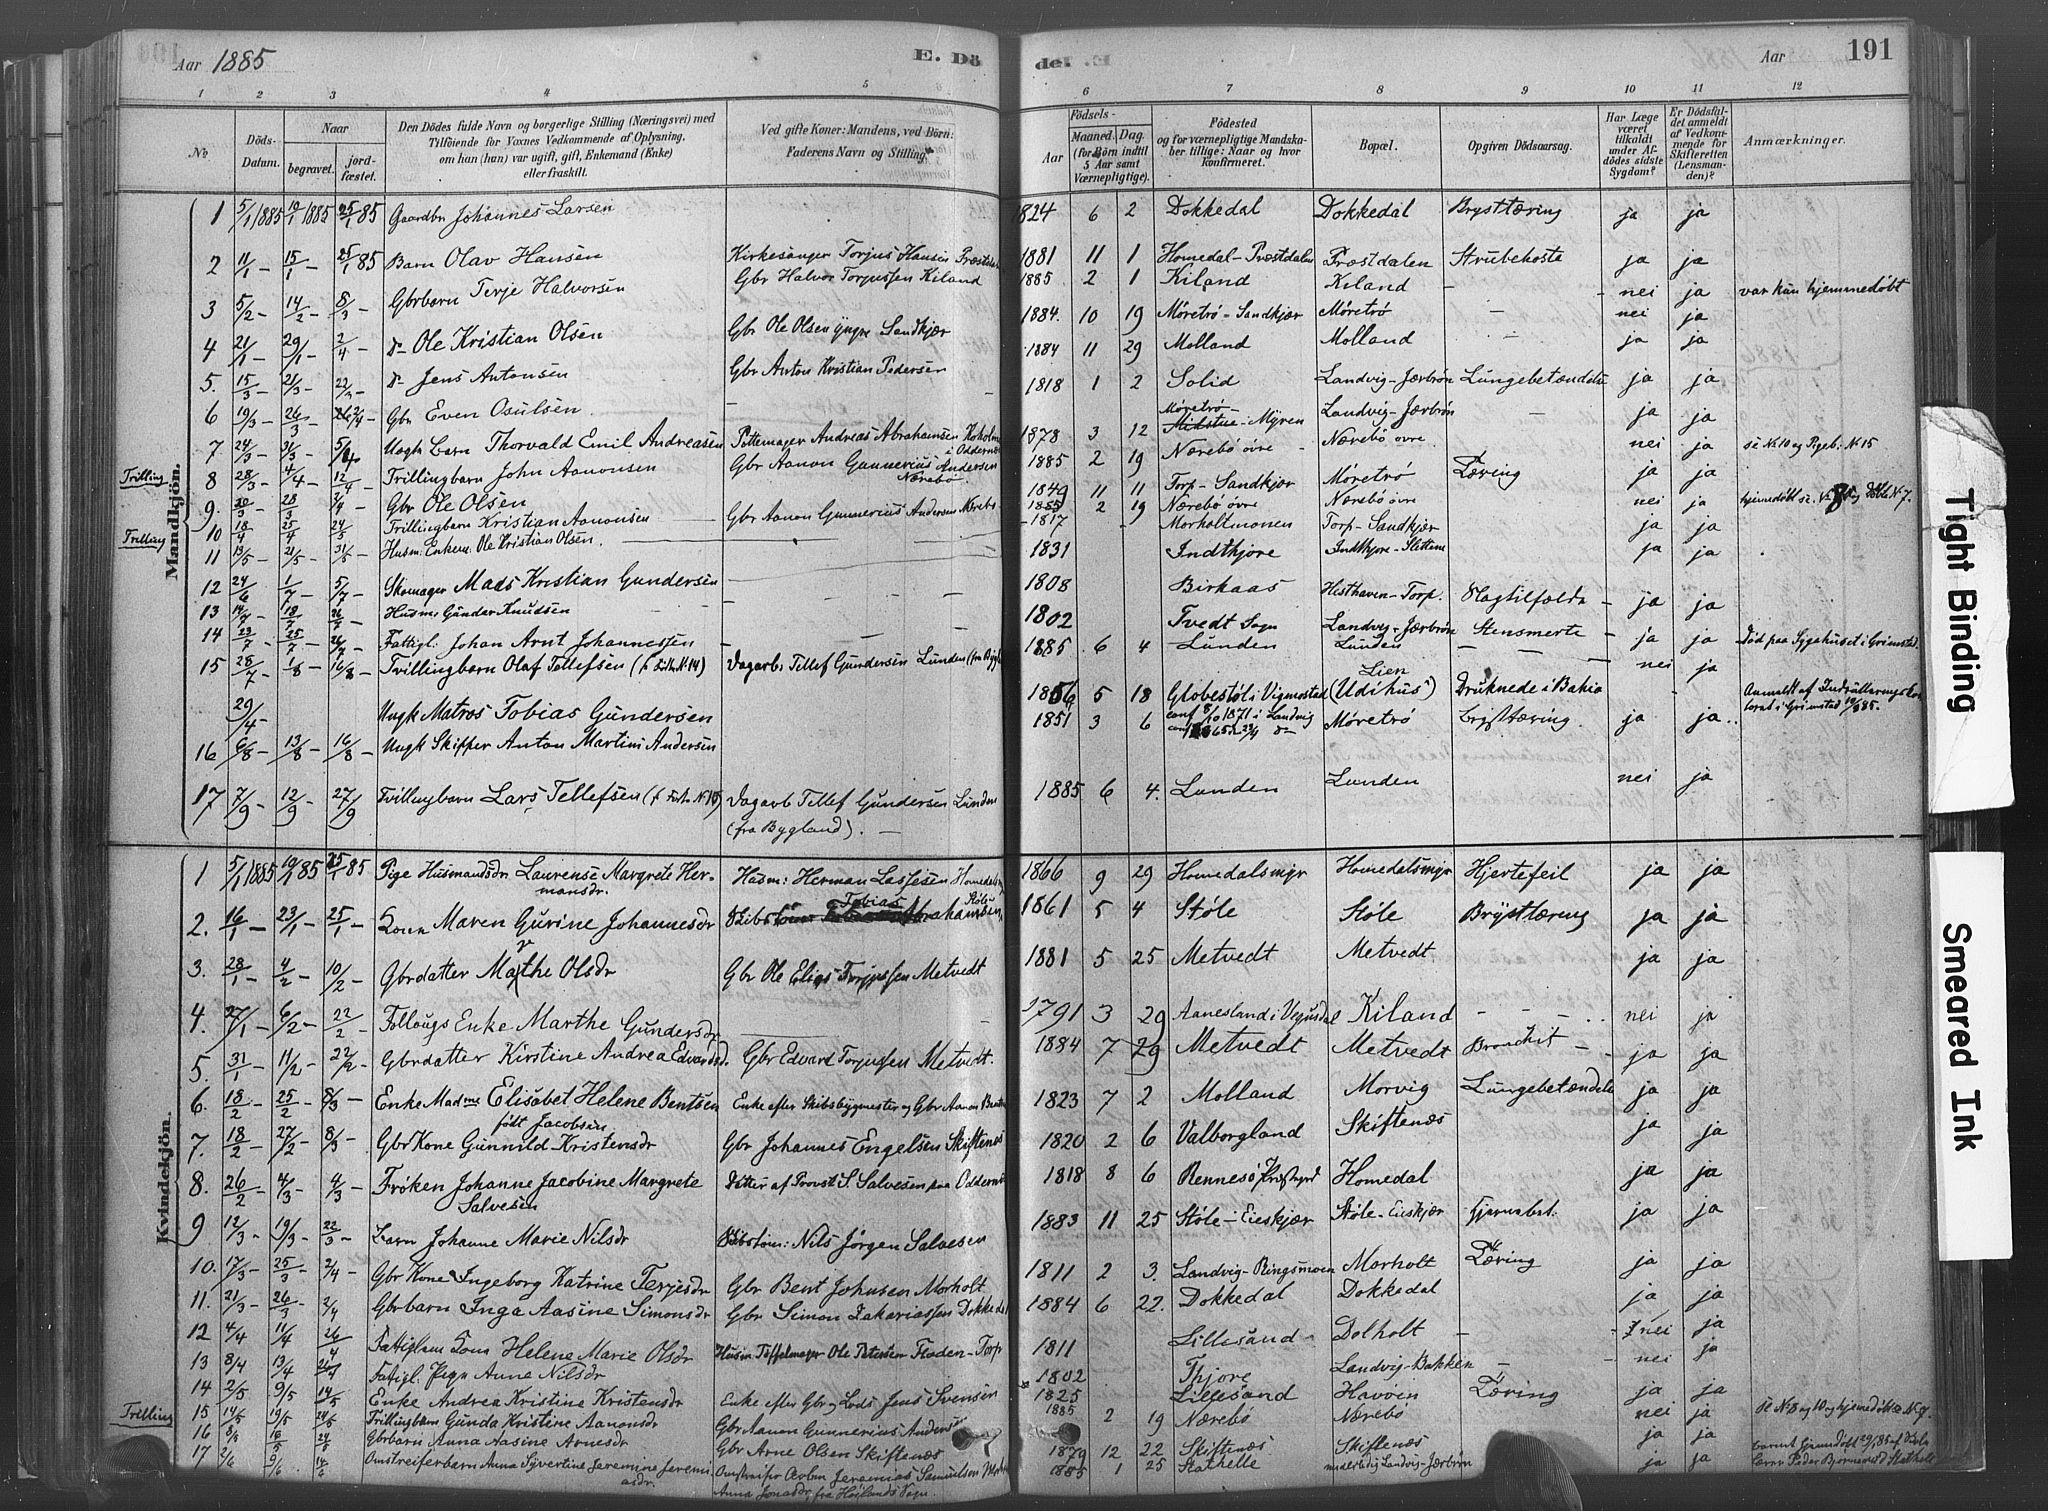 Aar 1885 E. Dö
de. Aar 191
1 2 3 4 5 6 7 8 9 10 11 12
№ Döds-Datum. Naar begravet. jord-fæstet. Den Dödes fulde Navn og borgerlige Stilling (Næringsvei) med Tilföiende for Voxnes Vedkommende af Oplysning, om han (hun) var ugift, gift, Enkemand (Enke) eller fraskilt. Ved gifte Koner: Mandens, ved Börn: Faderens Navn og Stilling. Födsels- Aar Maaned. Dag. (for Börn indtil 5 Aar samt Værnepligtige). Födested og for værnepligtige Mandskaber tillige: Naar og hvor konfirmeret. Bopæl. Opgiven Dödsaarsag. Har Læge været tilkaldt under Afdödes sidste Sygdom? Er Dödsfaldet anmeldt af Vedkommende for Skifteretten (Lensmanden)? Anmærkninger.
Mandkjön.
1 5/1 1885 10/1 1885 25/1 85 Gaardbr Johannes Larsen 1824 6 2 Dokkedal Dokkedal Brysttæring ja ja
2 11/1 – 15/1 – 25/1 85 Barn Olav Hansen Kirkesanger Torjus Hansen 1881 11 1 Homedal-Præstdalen Præstdalen Strubehoste ja ja
3 5/2 – 14/2 – 8/3 – Gbrbarn Terje Halvorsen Gbr Halvor Torjussen Kiland 1885 2 1 Kiland Kiland – nei ja var kun hjemmedøbt
4 21/1 – 29/1 – 2/4 – D– Ole Kristian Olsen Gbr Ole Olsen yngre Sandkjær 1884. 10 19 Møretrø-Sandkjær Møretrø – nei ja
5. 15/3 – 21/3 – 22/3 – D– Jens Antonsen Gbr Anton Kristian Pedersen 1884 11 29 Molland Molland ja ja
6 19/3 – 26/3 – 2/4 – Gbr Even Osulsen – 1818 1 2 Solid Landvig-Jærbrøn Lungebetændelse ja ja
7 24/3 – 31/3 – 5/4 Uægte Barn Thorvald Emil Andreasen Pottemager Andreas Abrahamsen Koholmen i Oddernes 1878 3 12 Møretrø-Myren Landvig-Jærbrøn – ja ja
Trilling 8 28/3 – 4/4 – 12/4 – Trillingbarn John Aanonsen Gbr Aanon Gunnerius Andersen Nærebø 1885 2 19 Nærebø øvre Nærebø øvre nei ja se N. 10 og Pigeb. N. 15
9. 20/3 – 28/3 – 2/4 – Gbr Ole Olsen 1849 11 11 Torp-Sandkjær Møretrø Tæring ja ja
Trilling 10 18/4 25/4 24/5 Trillingbarn Kristian Aanonsen Gbr Aanon Gunnerius Andersen Nærebø 1885 2 19 Nærebø øvre Nærebø øvre nei ja
11 13/5 – 21/5 – 31/5 – Husm: Enkem: Ole Kristian Olsen. 1817 – Morholtmonen Torp-Sandkjær ja ja
12 24/6 – 1/7 – 5/7 – Skomager Mads Kristian Gundersen 1831 Indtkjøre Indtkjøre-Slettene ja ja
13 14/7 – 18/7 – 26/7 Husm: Gundar Knudsen 1808 Birkaas Hesthaven-Torp. Slagtilfælde – ja ja
14 23/7 – 25/7 – 26/7 Fattigl. Johan Arnt Johannessen – 1802 Tvedt Sogn Landvig-Jærbrøn Stensmerte – ja ja Død paa Sygehuset i Grimstad
15 28/7 – 1/8 – 16/8 – Tvillingbarn Olaf Tellefsen Dagarb: Tellef Gundersen Lunden (fra Bygl. 1885 6 4 Lunden Lunden – – – nei ja
29/4 – Ungk Matros Tobias Gundersen 1856 5 18 Globestøl i Vigmostad conf 8/10 1871 i Landvig Lien (Udihus) Druknede i Bahia Anmeldt af Indrulleringskontoret i Grimstad
16 6/8 – 13/8 – 16/8 – Ungk Skipper Anton Martin Andersen 1851 3 6 Møretrø Brysttæring. ja ja
17 7/9 – 12/9 27/9 Tvillingbarn Lars Tellefsen Dagarb Tellef Gundersen Lunden (fra Bygland). – 1885 6 4. Lunden Lunden nei ja
Kvindekjön.
1 5/1 1885 10/1 85 25/1 85 Pige Husmandsdr. Laurense Margrete Hermansdr. Husm: Herman Lassesen 1866 9 29 Homedalsmyr Homedalsmyr Hjertefeil ja ja
2. 16/1 – 23/1 – 25/1 – Kone Maren Gurine Johannesdr Tobias Abrahamsen, Støle 1861 5 4 Støle Støle Brysttæring ja ja
3. 28/1 – 4/2 – 10/2 – Gbrdatter Marthe Olsdr Gbr Ole Elias Torjussen Metvedt 1881 5 25 Metvedt Metvedt ja ja
4. 27/1 – 6/2 – 22/2 – Føllougs Enke Marthe Gundersdr – 1791 3 29 Aanesland i Vegusdal Kiland – – – nei ja
5. 31/1 – 11/2 – 22/2 – Gbrdatter Kirstine Andrea Edvardsd. Gbr Edvard Torjussen Metvedt. 1884 7 29 Metvedt Metvedt Bronchit – ja ja
6. 18/2 – 25/2 – 8/3 – Enke Madme Elisabet Helene Bentsen født Jacobsen Enke efter Skibsbygmester og Gbr Aanon Bentsen 1823 7 2 Molland Morvig Lungebetændelse ja ja
7. 18/2 – 27/2 – 8/3 – Gbr Kone Gunnild Kristensdr Gbr Johannes Engelsen Skiftenes 1820 2 6 Valborgland Skiftenæs ja ja
8. 26/2 – 4/3 – 4/3 – Frøken Johanne Jacobine Margrete Salvesen Datter af Provst S. Salvesen paa Oddernes 1818 8 6 Rennesø Præstegrd Homedal ja ja
9 12/3 – 19/3 – 22/3 – Barn Johanne Marie Nilsdr Skibstøm: Nils Jørgen Salvesen 1883 11 25 Støle-Eieskjær Støle-Eieskjær ja ja
10. 17/3 – 25/3 – 2/4 – Gbr Kone Ingeborg Katrine Terjesdr Gbr Bent Johnsen Morholt. 1811 2 3. Landvig-Ringsmoen Morholt Tæring ja ja
11. 21/3 – 26/3 – 2/4 Gbrbarn Inga Aasine Simonsdr Gbr Simon Zakariassen Dokkedal 1884 6 22. Dokkedal Dokkedal ja ja
12 4/4 11/4 26/4 Fattiglem Kone Helene Marie Olsdr Husm Tøffelmager Ole Petersen Floden-Torp 1811 Lillesand – Dolholt – nei ja
13 8/4 13/4 26/4 Fattigl. Pigen Anne Nilsdr 1802 Thjøre Landvig-Bakken – nei ja
14 2/5 9/5 14/5 Enke Andrea Kristine Kristensdr Enke efter Gbr og Lods Jens Svensen 1825 Lillesand Havven Tæring ja ja
Trilling 15 14/5 19/5 24/5 Trillingbarn Gunda Kristine Aanonsdr Gbr Aanon Gunnerius Andersen 1885 2 19 Nærebø Nærebø nei ja
16 8/5 16/5 24/5 Gbrbarn Anna Aasine Arnesdr Gbr Arne Olsen Skiftenæs 1879 12 22 Skiftenæs Skiftenæs ja ja
17 2/6 9/6 14/6 Omstreiferbarn Anna Syvertine Jeremine Jeremiasdr. Omstreifer Arben Jeremias Samuelsen Anna Jonasdr, fra Høilands Sogn. 1885 1 25 Stathelle Landvig-Jærbrøn ja ja
Tight Binding
Smeared Ink